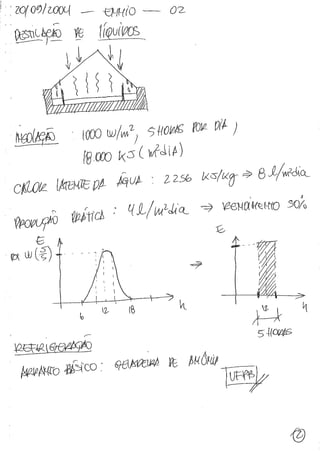 20/09/2004 — ENNIO — 02
DESTILAÇÃO DE líquidos
INSOLAÇÃO : 1000 W/m², 5 HORAS POR DIA )
18.000 kJ ( m²dIA)
CALOR LATENTE DA ÁGUA : 2256 kJ/kg ⇒ 8 l/m²dia
PRODUÇÃO PRÁTICA : 4 l/m²dia ⇒ RENDIMENTO 50%
E E
W
⇒
6 12 18 h 12 h
5 HORAS
REFRIGERAÇÃO
ARRANJO BÁSICO : GELADEIRA DE AMÔNIA
UFPB
2